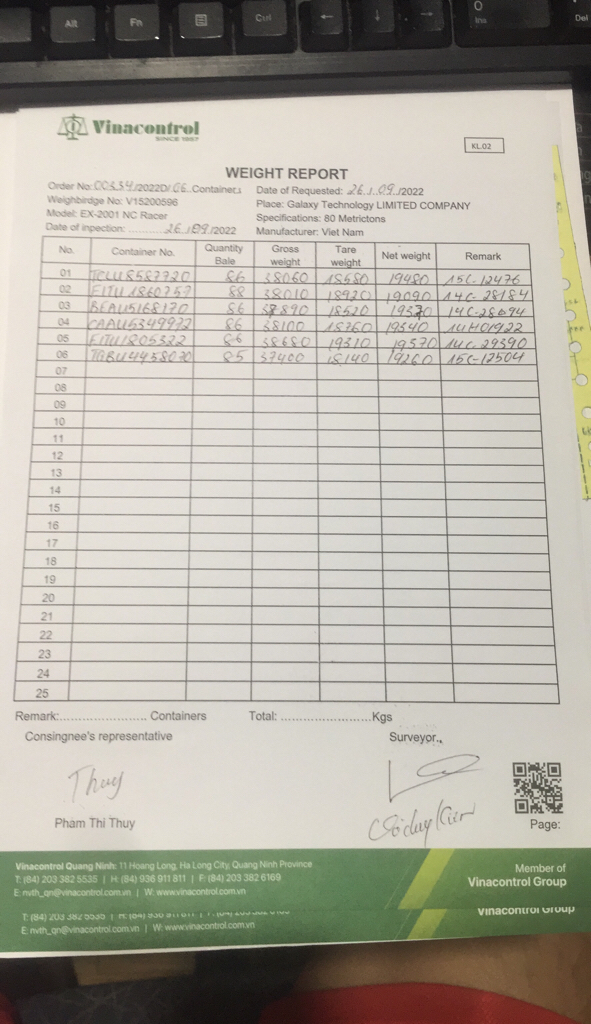 Alt Fn Ctrl ← ↓ → 0 Ins Del
Vinacontrol
SINCE 1957
KL.02
WEIGHT REPORT
Order No: 00334/2022D/ 06 Containers Date of Requested: 26/09/2022
Weighbirdge No: V15200596 Place: Galaxy Technology LIMITED COMPANY
Model: EX-2001 NC Racer Specifications: 80 Metrictons
Date of inpection: 26/09/2022 Manufacturer: Viet Nam
No. Container No. Quantity Bale Gross weight Tare weight Net weight Remark
01 TCLU8587720 86 38060 18580 19480 15C-12476
02 FITU1860757 88 38010 18920 19090 14C-28184
03 BEAU5168170 86 37890 18520 19370 14C-28694
04 CAAU5349972 86 38100 18760 19340 14H01922
05 FITU1805322 86 38680 19310 19370 14C-29390
06 TGBU4458020 85 37400 18140 19260 15C-12504
07
08
09
10
11
12
13
14
15
16
17
18
19
20
21
22
23
24
25
Remark:...................... Containers Total: ......................Kgs
Consingnee's representative Surveyor.,
Thuy
Pham Thi Thuy
Page:
Vinacontrol Quang Ninh: 11 Hoang Long, Ha Long City, Quang Ninh Province
T: (84) 203 382 5535 | H: (84) 936 911 811 | F: (84) 203 382 6169
E: nvth_qn@vinacontrol.com.vn | W: www.vinacontrol.com.vn
Member of
Vinacontrol Group
T: (84) 203 382 5535
Vinacontrol Group
E: nvth_qn@vinacontrol.com.vn | W: www.vinacontrol.com.vn